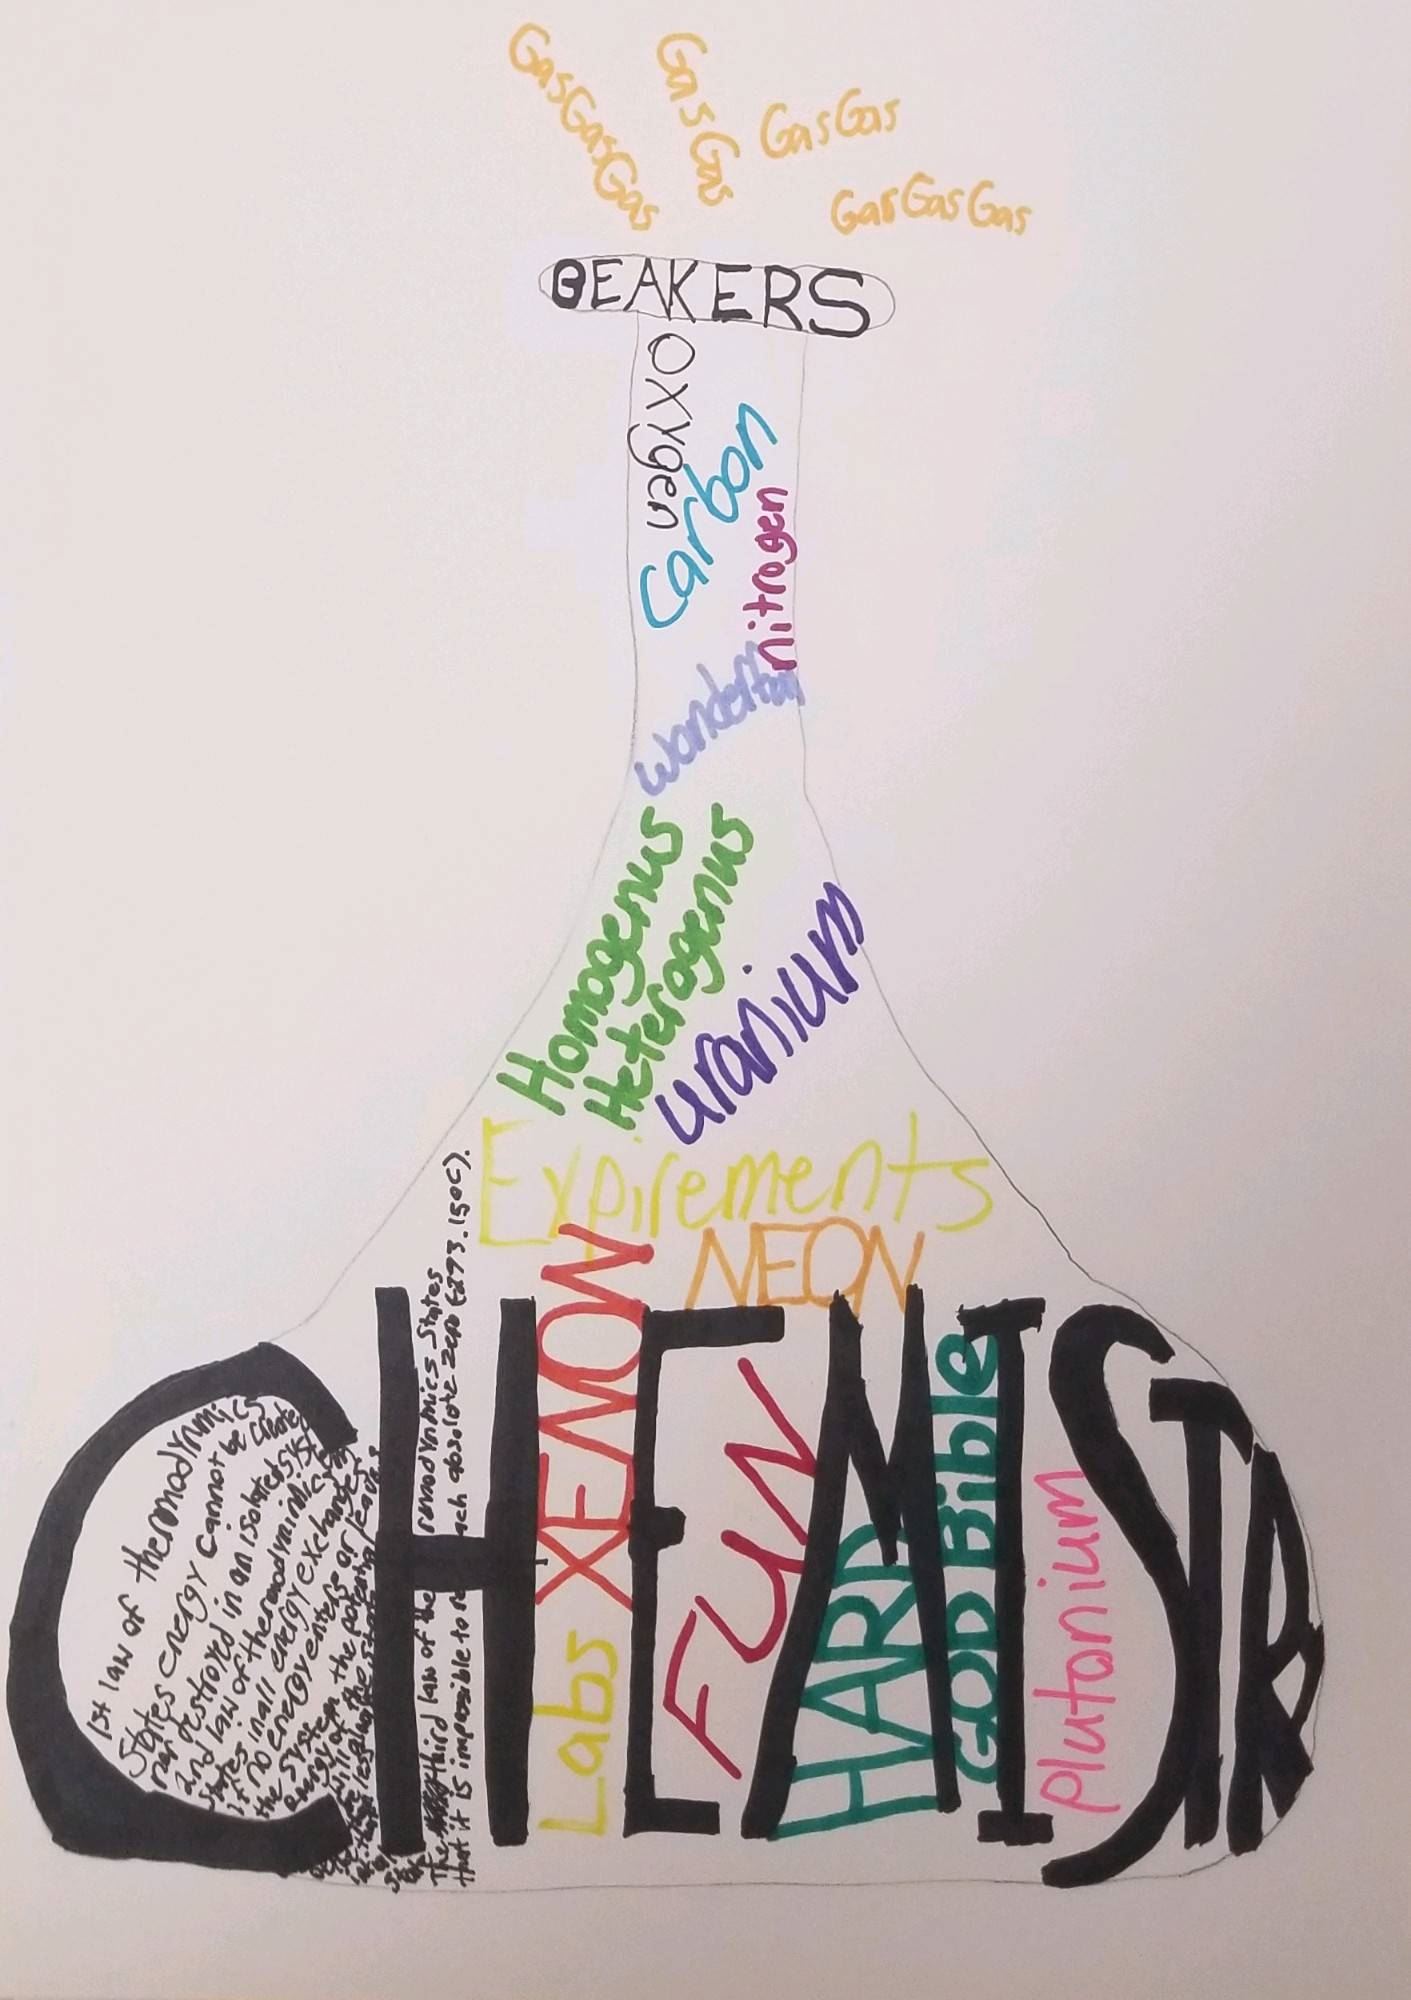 GasGasGas
GasGas
GasGas
GasGasGas
BEAKERS
oxygen
Carbon
nitrogen
Wonderful
Homogenus
Heterogenus
uranium
Expirements
NEON
XENON
CHEMISTR
FUN
HARD
GOD Bible
Labs
plutonium
1st law of thermodynmics
States energy cannot be create
nor destroyed in an isolated syst
2nd law of thermodynimics
States in all energy exchanges
if no energy enters or leaves
the system the potential
energy of the state
will
less than
The third law of the remodynmics States
that it is impossible to re ach absolote zero (-273.150C).